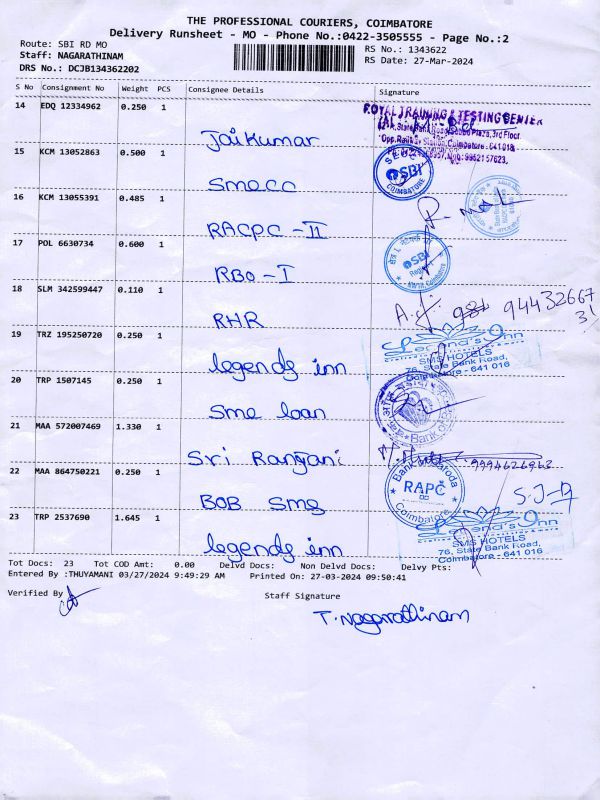 THE PROFESSIONAL COURIERS, COIMBATORE
Delivery Runsheet - MO - Phone No.:0422-3505555 - Page No.:2
Route: SBI RD MO
RS No.: 1343622
Staff: NAGARATHINAM
RS Date: 27-Mar-2024
DRS No.: DCJB134362202
S No Consignment No Weight PCS Consignee Details Signature
14 EDQ 12334962 0.250 1
Jaikumar
ROYAL TRAINING & TESTING CENTER
15 KCM 13052863 0.500 1
smecc
SBI
COIMBATORE
16 KCM 13055391 0.485 1
RACPC - II
17 POL 6630734 0.600 1
RBO - I
SBI
18 SLM 342599447 0.110 1
RHR
94432667
31
19 TRZ 195250720 0.250 1
legends inn
Legend's Inn
SMS HOTELS
76, State Bank Road,
Coimbatore - 641 016
20 TRP 1507145 0.250 1
Sme loan
21 MAA 572007469 1.330 1
Sri Ranjani
9994626963
22 MAA 864750221 0.250 1
BOB sme
Bank of Baroda
RAPC
Coimbatore
23 TRP 2537690 1.645 1
legends inn
Legend's Inn
SMS HOTELS
76, State Bank Road,
Coimbatore - 641 016
Tot Docs: 23 Tot COD Amt: 0.00 Delvd Docs: Non Delvd Docs: Delvy Pts:
Entered By :THUYAMANI 03/27/2024 9:49:29 AM Printed On: 27-03-2024 09:50:41
Verified By
Staff Signature
T. Nagarathinam